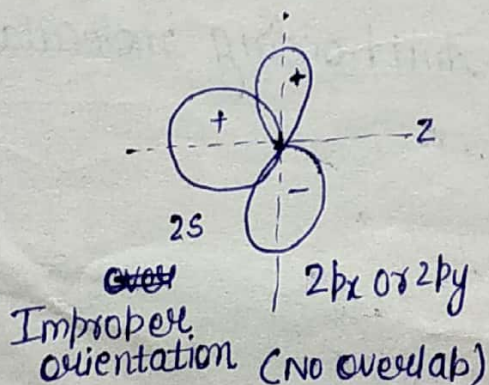 +
+
Z
-
2S
2px or 2py
Improper
orientation (No overlap)